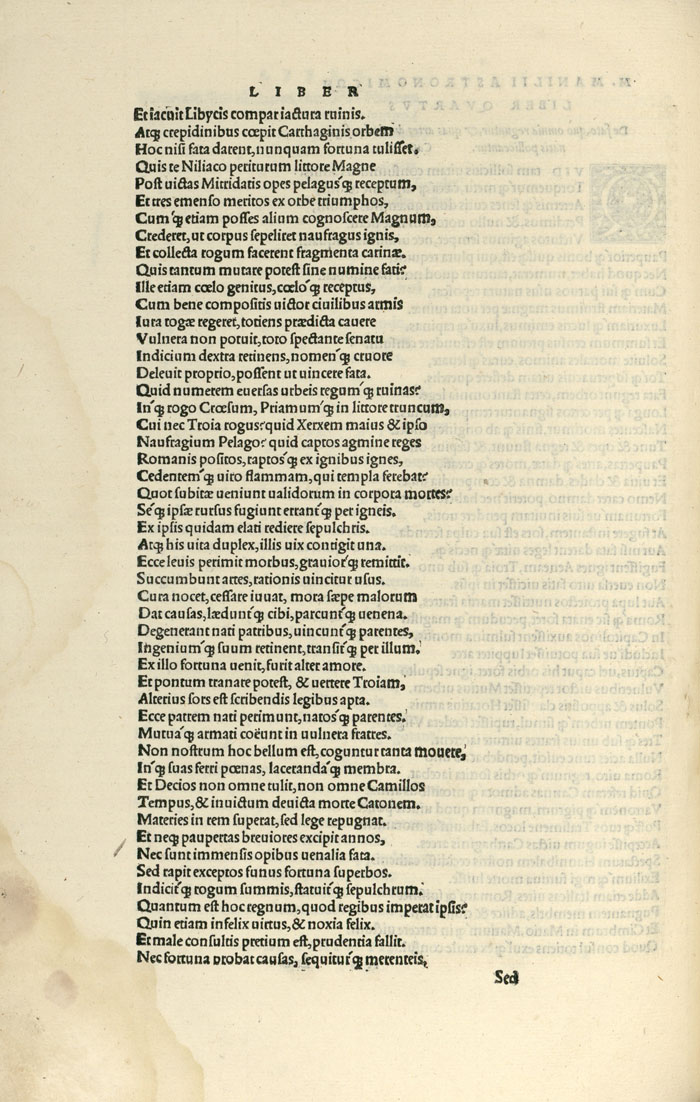 LIBER
Et iacuit Libycis compar iactura ruinis.
Atq; crepidinibus cœpit Carthaginis orbem
Hoc nisi fata darent, nunquam fortuna tulisset.
Quis te Niliaco periturum littore Magne
Post uictas Mitridatis opes pelagus'q; receptum,
Et tres emenso meritos ex orbe triumphos,
Cum'q; etiam posses alium cognoscere Magnum,
Crederet, ut corpus sepeliret naufragus ignis,
Et collecta rogum facerent fragmenta carinæ.
Quis tantum mutare potest sine numine fati?
Ille etiam cœlo genitus, cœlo'q; receptus,
Cum bene compositis uictor ciuilibus armis
Iura togæ regeret, totiens prædicta cauere
Vulnera non potuit, toto spectante senatu
Indicium dextra retinens, nomen'q; cruore
Deleuit proprio, possent ut uincere fata.
Quid numerem euersas urbeis regum'q; ruinas?
In'q; rogo Crœsum, Priamum'q; in littore truncum,
Cui nec Troia rogus? quid Xerxem maius & ipso
Naufragium Pelago? quid captos agmine reges
Romanis positos, raptos'q; ex ignibus ignes,
Cedentem'q; uiro flammam, qui templa ferebat?
Quot subitæ ueniunt ualidorum in corpora mortes?
Se'q; ipsæ rursus fugiunt errant'q; per igneis.
Ex ipsis quidam elati rediere sepulchris.
Atq; his uita duplex, illis uix contigit una.
Ecce leuis perimit morbus, grauior'q; remittit.
Succumbunt artes, rationis uincitur usus.
Cura nocet, cessare iuuat, mora sæpe malorum
Dat causas, lædunt'q; cibi, parcunt'q; uenena.
Degenerant nati patribus, uincunt'q; parentes,
Ingenium'q; suum retinent, transit'q; per illum.
Ex illo fortuna uenit, furit alter amore.
Et pontum tranare potest, & uertere Troiam,
Alterius sors est scribendis legibus apta.
Ecce patrem nati perimunt, natos'q; parentes.
Mutua'q; armati coëunt in uulnera fratres.
Non nostrum hoc bellum est, coguntur tanta mouere,
In'q; suas ferri pœnas, laceranda'q; membra.
Et Decios non omne tulit, non omne Camillos
Tempus, & inuictum deuicta morte Catonem.
Materies in rem superat, sed lege repugnat.
Et neq; paupertas breuiores excipit annos,
Nec sunt immensis opibus uenalia fata.
Sed rapit exceptos funus fortuna superbos.
Indicit'q; rogum summis, statuit'q; sepulchrum.
Quantum est hoc regnum, quod regibus imperat ipsis?
Quin etiam infelix uirtus, & noxia felix.
Et male consultis pretium est, prudentia fallit.
Nec fortuna probat causas, sequitur'q; merenteis,
Sed